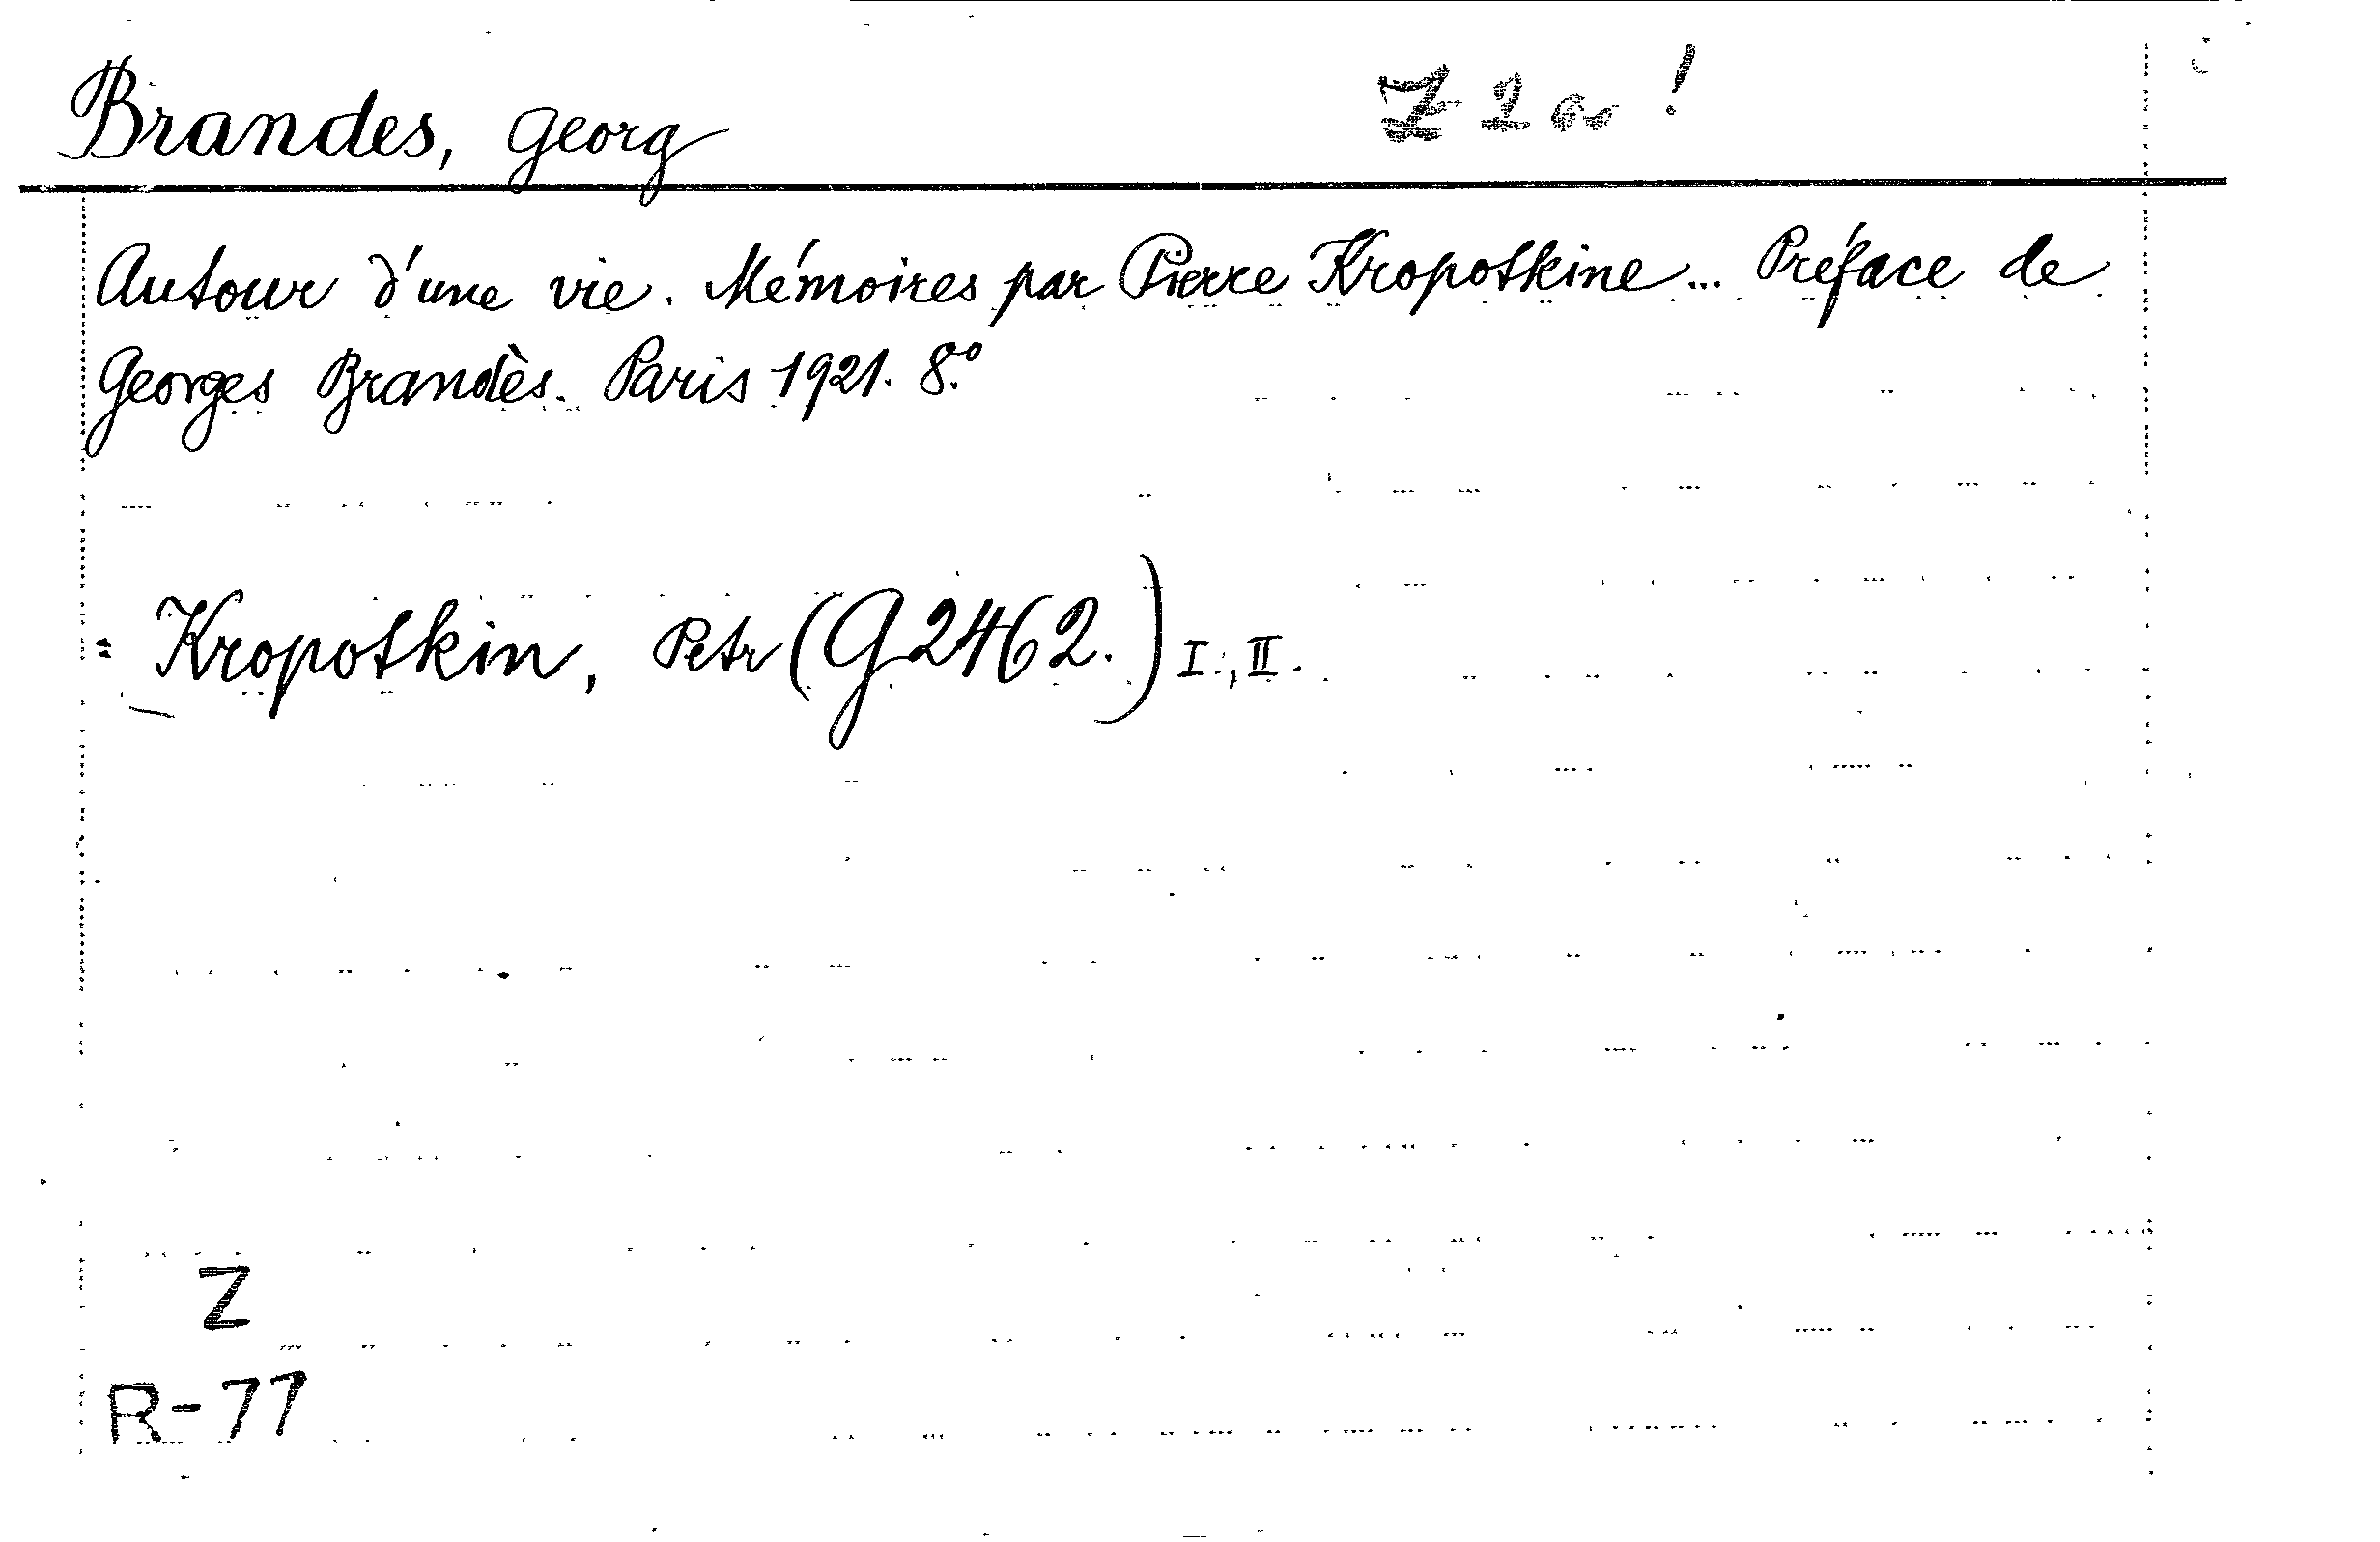 Brandes, Georg
Z 2 a !
Autour d'une vie. Mémoires par Pierre Kropotkine... Préface de
Georges Brandès. Paris 1921. 8.°
= Kropotkin, Petr (G 2462.) I., II.
Z
R-77